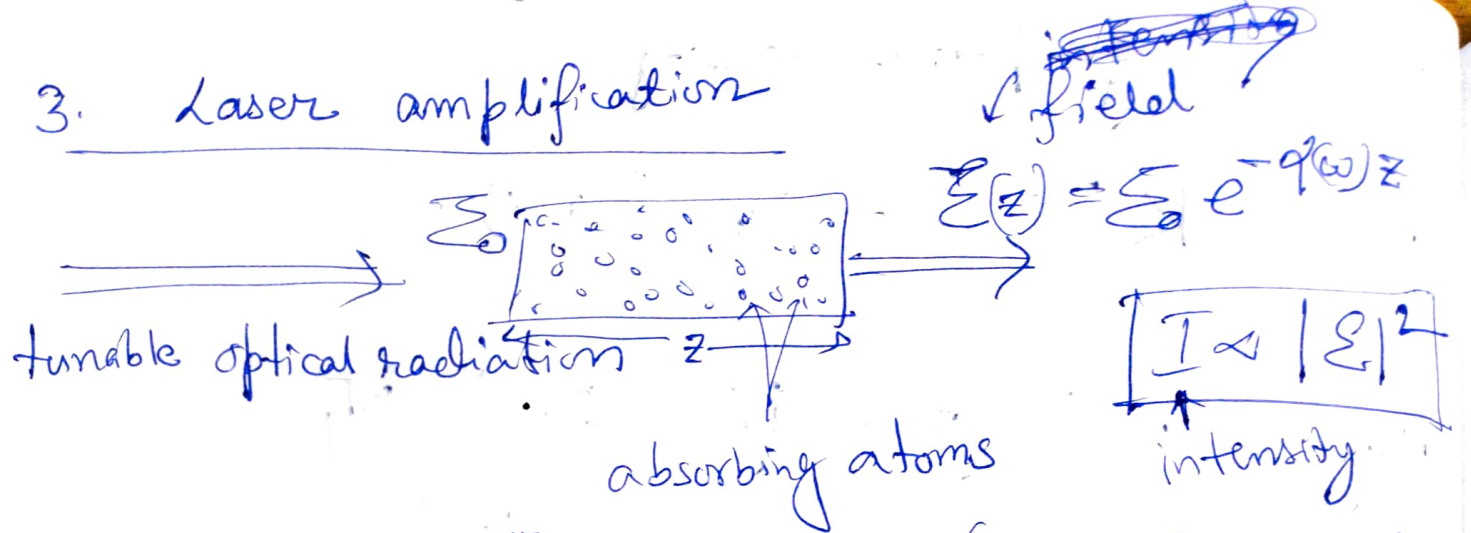 3. Laser amplification
field
ℰ₀
ℰ(z) = ℰ₀ e^{-α(ω)z}
tunable optical radiation
z
I ∝ |ℰ|²
absorbing atoms
intensity